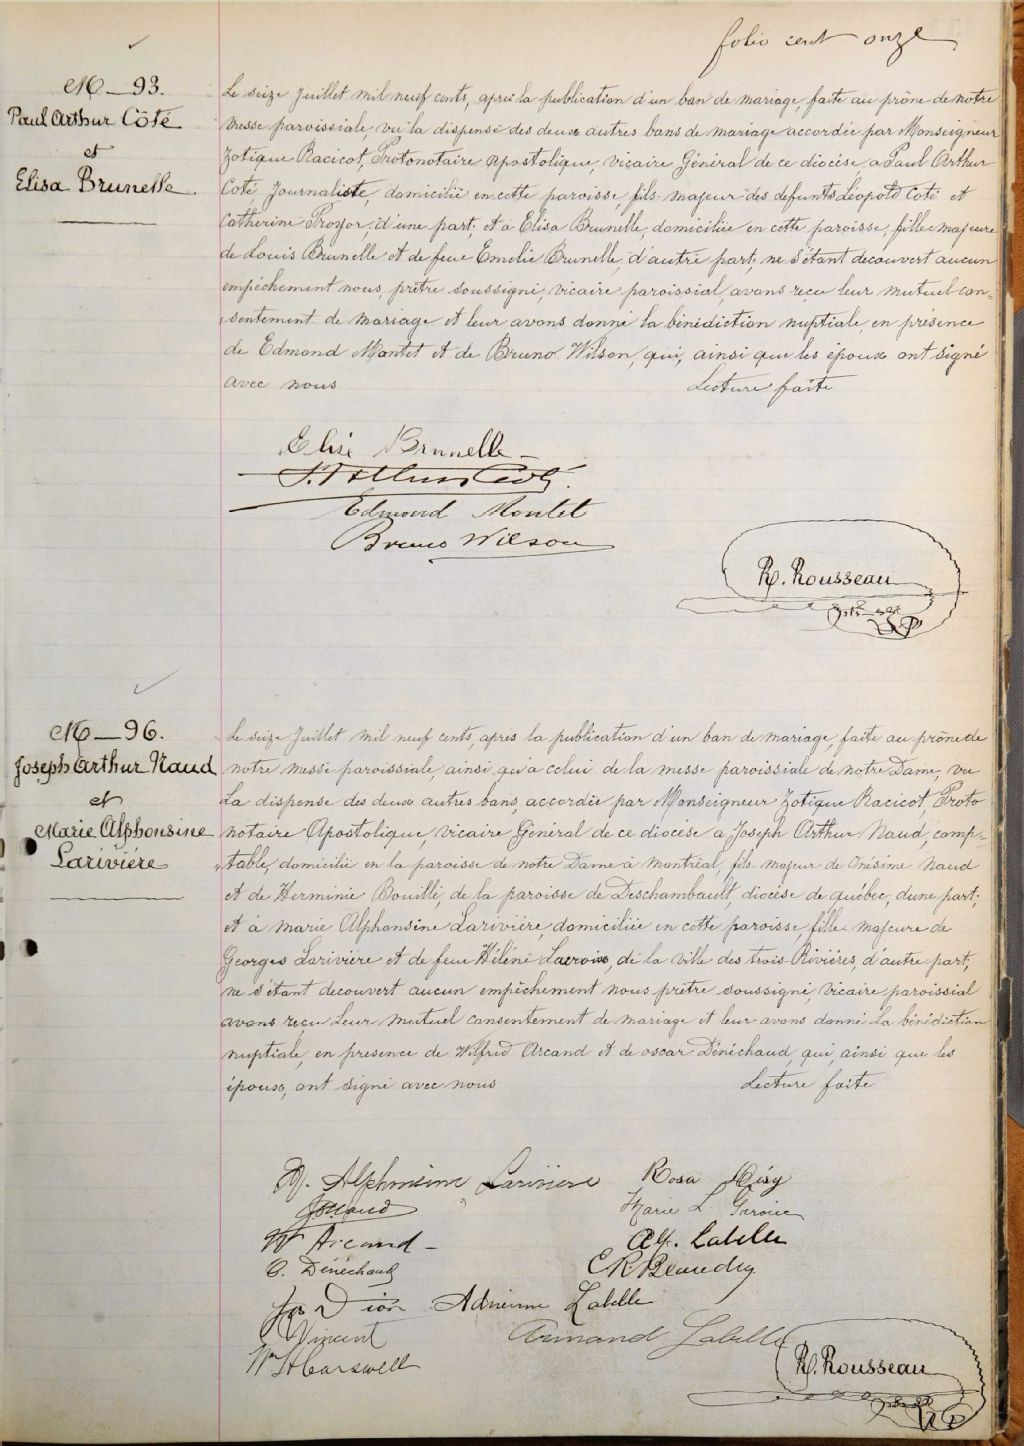 folio cent onze
M — 93.
Paul Arthur Côté
et
Elisa Brunelle.
Le seize Juillet mil neuf cents, après la publication d'un ban de mariage, faite au prône de notre
messe paroissiale, vu la dispense des deux autres bans de mariage accordée par Monseigneur
Zotique Racicot, Protonotaire apostolique, vicaire Général de ce diocèse, a Paul Arthur
Coté, Journaliste, domicilié en cette paroisse, fils majeur des defunts Léopold Coté et
Catherine, d'une part; et à Elisa Brunelle, domiciliée en cette paroisse, fille majeure
de Louis Brunelle et de feue Emelie Brunelle, d'autre part; ne s'étant decouvert aucun
empêchement nous, prêtre soussigné, vicaire paroissial, avons reçu leur mutuel con-
sentement de mariage et leur avons donné la bénédiction nuptiale, en présence
de Edmond Montet et de Bruno Wilson, qui, ainsi que les époux ont signé
avec nous Lecture faite
Elise Brunelle
Arthur Coté.
Edmond Montet
Bruno Wilson
R. Rousseau
M — 96.
Joseph Arthur Naud
et
Marie Alphonsine
Larivière
Le seize Juillet mil neuf cents, apres la publication d'un ban de mariage, faite au prône de
notre messe paroissiale ainsi qu'à celui de la messe paroissiale de notre Dame, vu
la dispense des deux autres bans, accordée par Monseigneur Zotique Racicot, Proto
notaire Apostolique, vicaire Général de ce diocèse a Joseph Arthur Naud, comp-
table, domicilié en la paroisse de notre Dame à Montréal, fils majeur de Onésime Naud
et de Herminie Bouillé, de la paroisse de Deschambault, diocèse de québec, dune part;
et à marie Alphonsine Larivière, domiciliée en cette paroisse, fille majeure de
Georges Larivière et de feue Hélène Lacroix, de la ville des trois-Rivières, d'autre part,
ne s'étant decouvert aucun empêchement nous prêtre soussigné, vicaire paroissial
avons reçu leur mutuel consentement de mariage et leur avons donné la bénédiction
nuptiale, en presence de Wilfrid Arcand et de oscar Dénéchaud, qui, ainsi que les
époux, ont signé avec nous Lecture faite
M. Alphonsine Larivière Rosa
Naud Marie L.
W Arcand Alf. Labelle
O. Dénéchaud E R Beaudry
Jos Dion Adrienne Labelle
Vincent Armand Labelle
Wm H Carswell
R. Rousseau